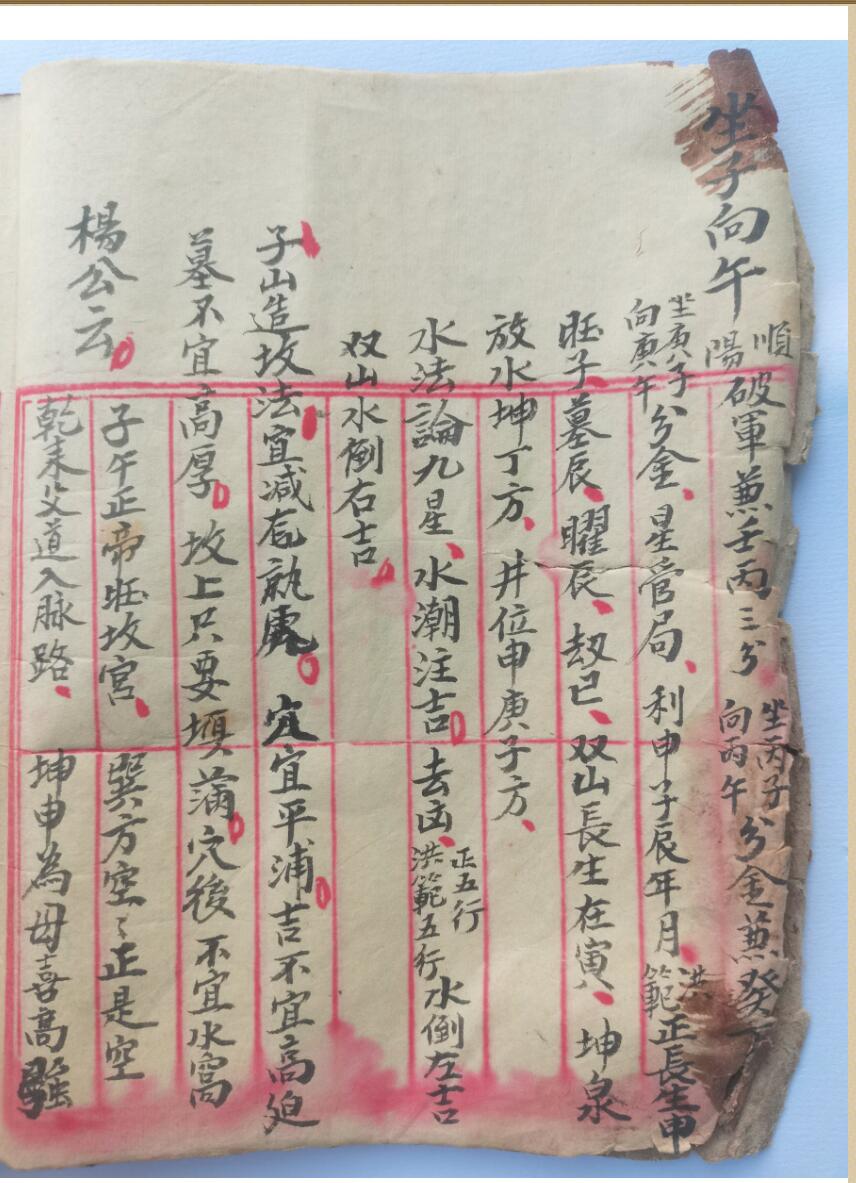 坐子向午 順陽破軍兼壬丙三分 坐丙子向丙午 分金兼癸
坐庚子向庚午分金、星管局、利申子辰年月、洪範正長生申
旺子、墓辰、曜辰、劫巳、双山長生在寅、坤泉
放水坤丁方、井位申庚子方、
水法論九星、水潮注吉去凶、正五行洪範五行水倒左吉
双山水倒右吉
子山造坟法宜减 宜平浦吉不宜高
墓不宜高厚坟上只要 穴後不宜水窩
楊公云
子午正帝旺坟宮、巽方空〻正是空
乾来父道入脉路、坤申為母喜高